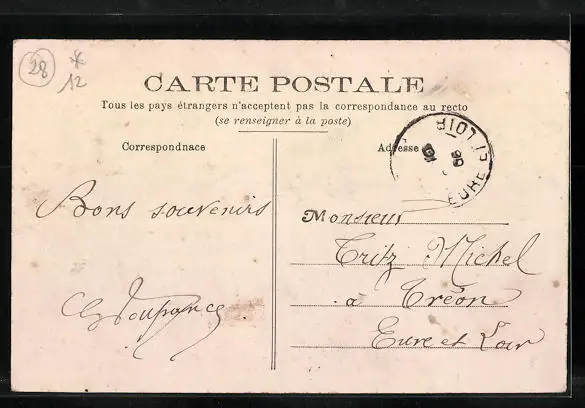 28
12
CARTE POSTALE
Tous les pays étrangers n'acceptent pas la correspondance au recto
(se renseigner à la poste)
Correspondnace
Adresse
EURE ET LOIR
Bons souvenirs
Monsieur
Fritz Michel
à Tréon
Eure et Loir